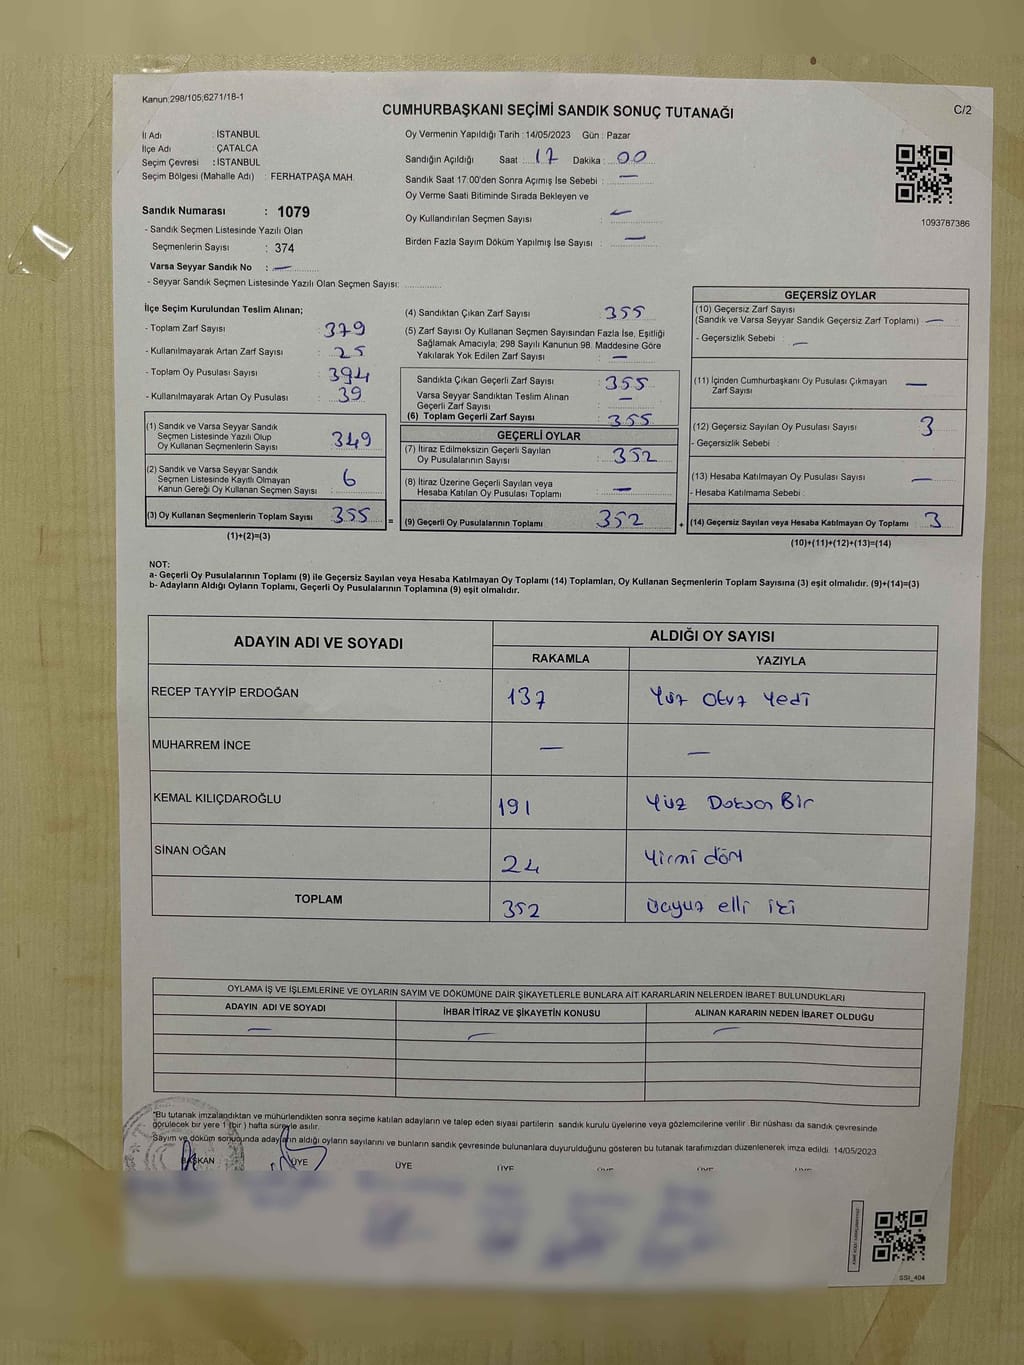 Kanun:298/105;6271/18-1
CUMHURBAŞKANI SEÇİMİ SANDIK SONUÇ TUTANAĞI
C/2
İl Adı : İSTANBUL
İlçe Adı : ÇATALCA
Seçim Çevresi : İSTANBUL
Seçim Bölgesi (Mahalle Adı) : FERHATPAŞA MAH.
Sandık Numarası : 1079
- Sandık Seçmen Listesinde Yazılı Olan
Seçmenlerin Sayısı : 374
Varsa Seyyar Sandık No : —
- Seyyar Sandık Seçmen Listesinde Yazılı Olan Seçmen Sayısı:
Oy Vermenin Yapıldığı Tarih : 14/05/2023 Gün : Pazar
Sandığın Açıldığı Saat : 17 Dakika : 00
Sandık Saat 17.00'den Sonra Açımış İse Sebebi : —
Oy Verme Saati Bitiminde Sırada Bekleyen ve
Oy Kullandırılan Seçmen Sayısı : —
Birden Fazla Sayım Döküm Yapılmış İse Sayısı : —
1093787386
İlçe Seçim Kurulundan Teslim Alınan;
- Toplam Zarf Sayısı : 379
- Kullanılmayarak Artan Zarf Sayısı : 25
- Toplam Oy Pusulası Sayısı : 394
- Kullanılmayarak Artan Oy Pusulası : 39
(1) Sandık ve Varsa Seyyar Sandık
Seçmen Listesinde Yazılı Olup
Oy Kullanan Seçmenlerin Sayısı : 349
(2) Sandık ve Varsa Seyyar Sandık
Seçmen Listesinde Kayıtlı Olmayan
Kanun Gereği Oy Kullanan Seçmen Sayısı : 6
(3) Oy Kullanan Seçmenlerin Toplam Sayısı : 355
(1)+(2)=(3)
(4) Sandıktan Çıkan Zarf Sayısı : 355
(5) Zarf Sayısı Oy Kullanan Seçmen Sayısından Fazla İse, Eşitliği
Sağlamak Amacıyla; 298 Sayılı Kanunun 98. Maddesine Göre
Yakılarak Yok Edilen Zarf Sayısı : —
Sandıkta Çıkan Geçerli Zarf Sayısı : 355
Varsa Seyyar Sandıktan Teslim Alınan
Geçerli Zarf Sayısı : —
(6) Toplam Geçerli Zarf Sayısı : 355
GEÇERLİ OYLAR
(7) İtiraz Edilmeksizin Geçerli Sayılan
Oy Pusulalarının Sayısı : 352
(8) İtiraz Üzerine Geçerli Sayılan veya
Hesaba Katılan Oy Pusulası Toplamı : —
= (9) Geçerli Oy Pusulalarının Toplamı : 352 +
GEÇERSİZ OYLAR
(10) Geçersiz Zarf Sayısı
(Sandık ve Varsa Seyyar Sandık Geçersiz Zarf Toplamı) : —
- Geçersizlik Sebebi : —
(11) İçinden Cumhurbaşkanı Oy Pusulası Çıkmayan
Zarf Sayısı : —
(12) Geçersiz Sayılan Oy Pusulası Sayısı : 3
- Geçersizlik Sebebi :
(13) Hesaba Katılmayan Oy Pusulası Sayısı : —
- Hesaba Katılmama Sebebi :
(14) Geçersiz Sayılan veya Hesaba Katılmayan Oy Toplamı : 3
(10)+(11)+(12)+(13)=(14)
NOT:
a- Geçerli Oy Pusulalarının Toplamı (9) ile Geçersiz Sayılan veya Hesaba Katılmayan Oy Toplamı (14) Toplamları, Oy Kullanan Seçmenlerin Toplam Sayısına (3) eşit olmalıdır. (9)+(14)=(3)
b- Adayların Aldığı Oyların Toplamı, Geçerli Oy Pusulalarının Toplamına (9) eşit olmalıdır.
ADAYIN ADI VE SOYADI ALDIĞI OY SAYISI
RAKAMLA YAZIYLA
RECEP TAYYİP ERDOĞAN 137 Yüz Otuz Yedi
MUHARREM İNCE — —
KEMAL KILIÇDAROĞLU 191 Yüz Doksan Bir
SİNAN OĞAN 24 Yirmi dört
TOPLAM 352 Üçyüz elli iki
OYLAMA İŞ VE İŞLEMLERİNE VE OYLARIN SAYIM VE DÖKÜMÜNE DAİR ŞİKAYETLERLE BUNLARA AİT KARARLARIN NELERDEN İBARET BULUNDUKLARI
ADAYIN ADI VE SOYADI İHBAR İTİRAZ VE ŞİKAYETİN KONUSU ALINAN KARARIN NEDEN İBARET OLDUĞU
— — —
*Bu tutanak imzalandıktan ve mühürlendikten sonra seçime katılan adayların ve talep eden siyasi partilerin sandık kurulu üyelerine veya gözlemcilerine verilir. Bir nüshası da sandık çevresinde
görülecek bir yere 1 (bir ) hafta süreyle asılır.
Sayım ve döküm sonucunda adayların aldığı oyların sayılarını ve bunların sandık çevresinde bulunanlara duyurulduğunu gösteren bu tutanak tarafımızdan düzenlenerek imza edildi. 14/05/2023
BAŞKAN ÜYE ÜYE ÜYE ÜYE ÜYE ÜYE
SSİ_404